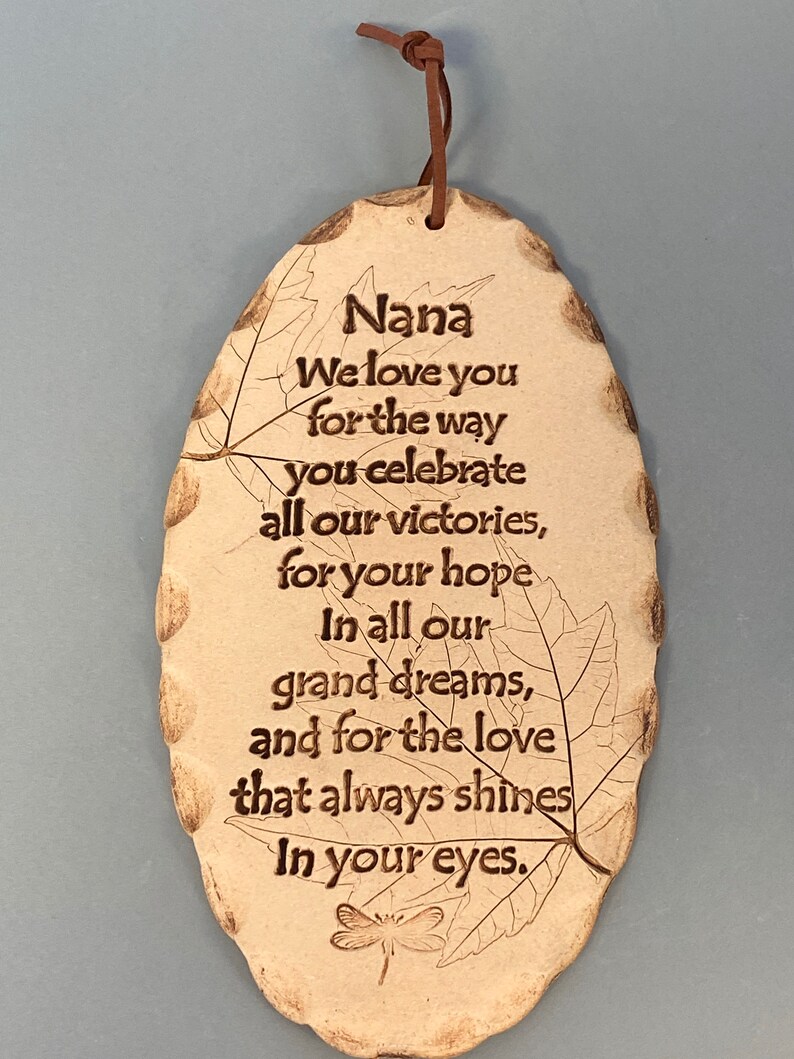 Nana
We love you
for the way
you celebrate
all our victories,
for your hope
In all our
grand dreams,
and for the love
that always shines
In your eyes.